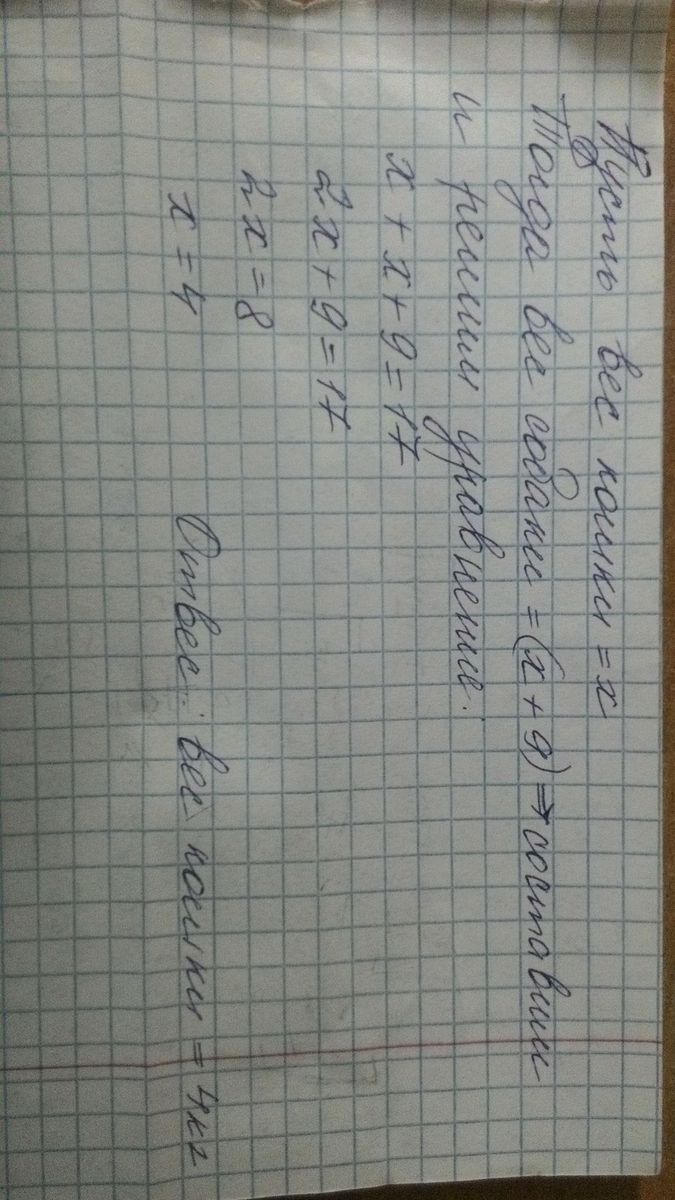 Пусть вес кошки = x
Тогда вес собаки = (x + 9) ⇒ составим
и решим уравнение:
x + x + 9 = 17
2x + 9 = 17
2x = 8
x = 4
Ответ: вес кошки = 4кг